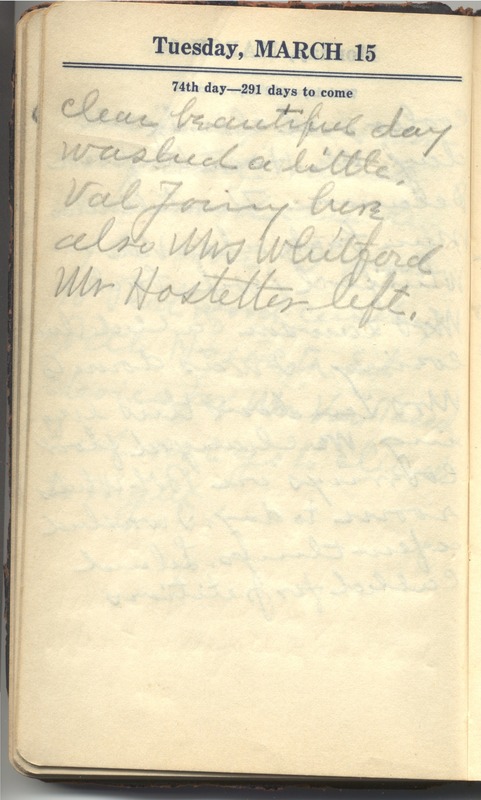 Tuesday, MARCH 15
74th day—291 days to come
clear beautiful day
washed a little.
Val Joiny here
also Mrs Whitford
Mr Hostetter left.